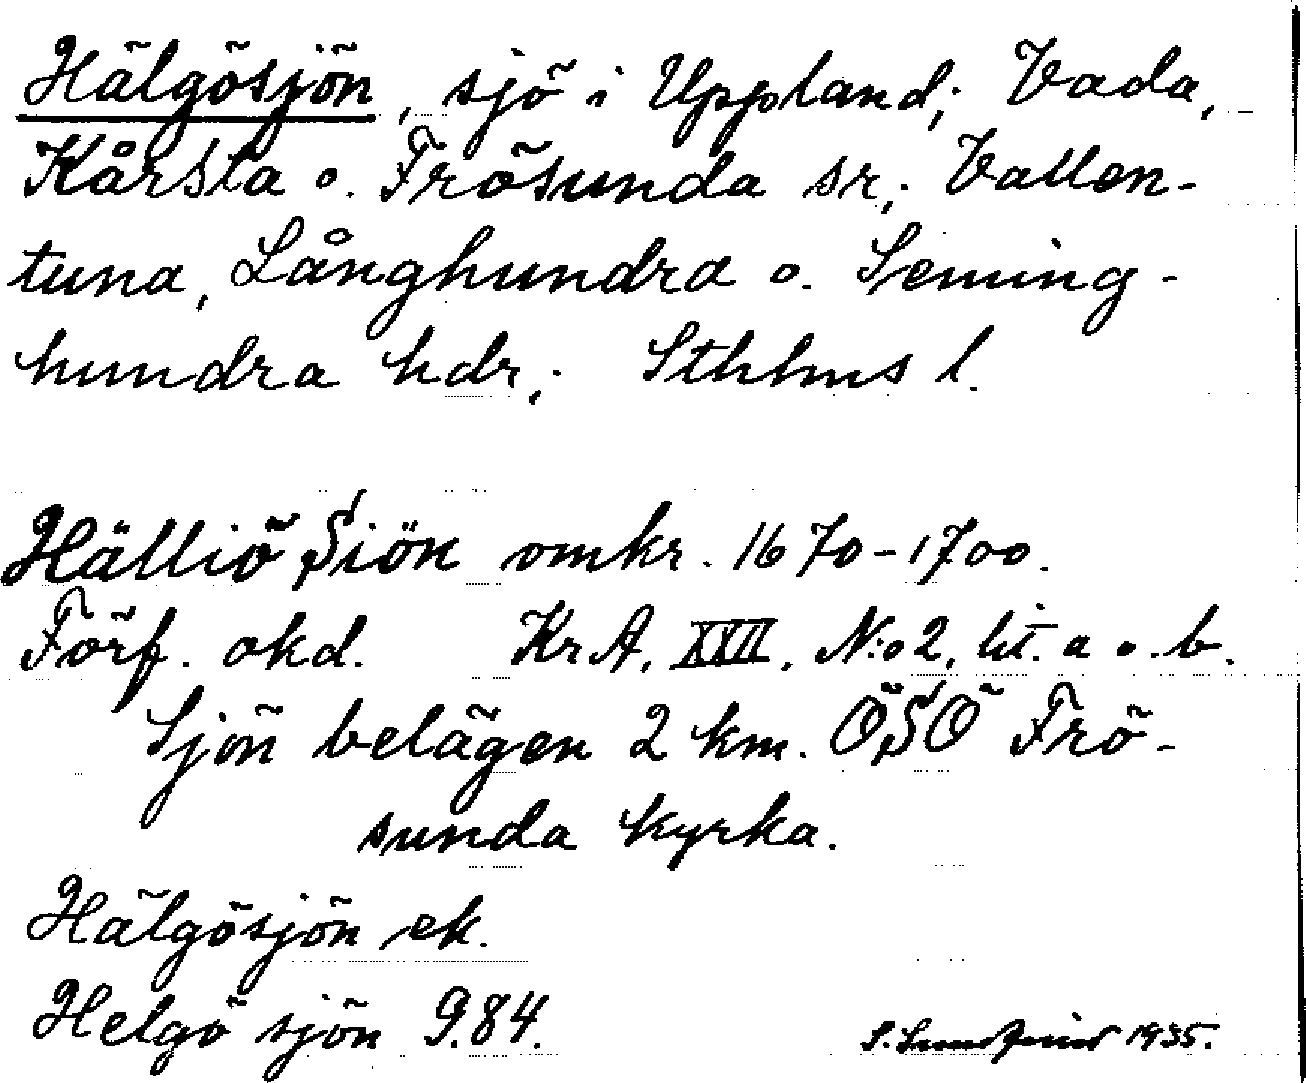 Hälgösjön, sjö i Uppland; Vada,
Kårsta o. Frösunda sr; Vallen-
tuna, Långhundra o. Seming-
hundra hdr; Sthlms l.
Hälliö Siön omkr. 1670-1700.
Förf. okd. KrA, XXII, N:o 2, lit. a o. b.
Sjön belägen 2 km. ÖSÖ Frö-
sunda kyrka.
Hälgösjön ek.
Helgö sjön G.84.
S. 1935.